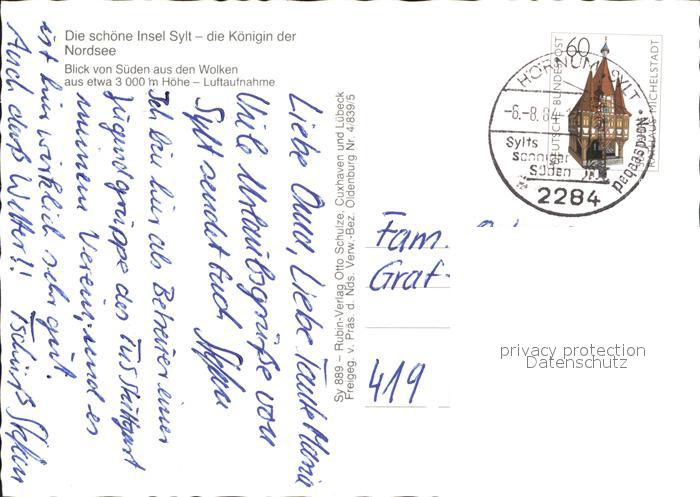 Die schöne Insel Sylt – die Königin der
Nordsee
Blick von Süden aus den Wolken
aus etwa 3 000 m Höhe – Luftaufnahme
Liebe Oma, Liebe Tante Maria
Viele Urlaubsgrüße von
Sylt sendet Euch Stefan
Ich bin hier als Betreuer einer
Jugendgruppe des TuS Stuttgart
meinem Verein, und es
ist hier wirklich sehr gut.
Auch das Wetter!! Tschüß Stefan
Sy 889 – Rubin-Verlag Otto Schulze, Cuxhaven und Lübeck
Freigeg. v. Präs. d. Nds. Verw.-Bez. Oldenburg Nr. 4/839/5
60
DEUTSCHE BUNDESPOST
RATHAUS MICHELSTADT
HÖRNUM, SYLT
-6.-8.84
Sylts
sonniger
Süden
Nordseebad
2284
Fam.
Graf-
419
privacy protection
Datenschutz